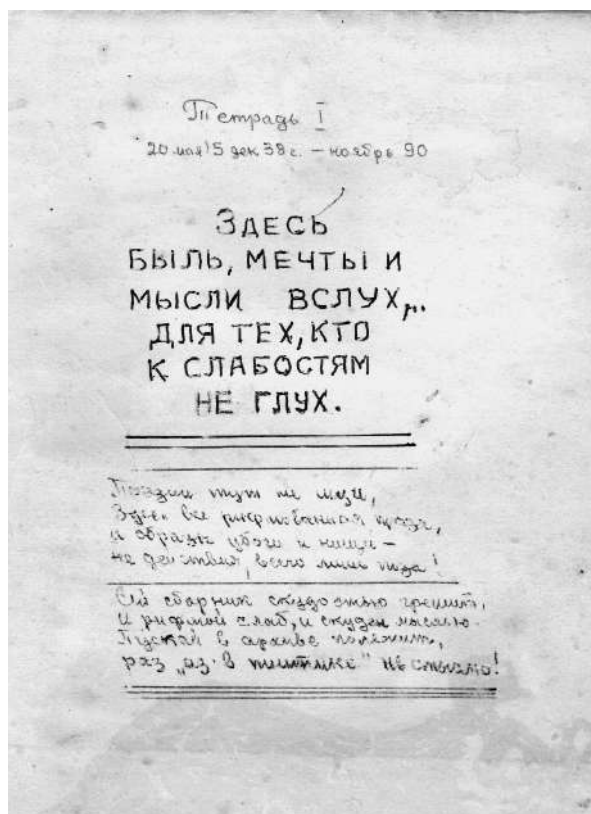 Тетрадь I
20 мая 5 дек 38 г. – ноябрь 90
ЗДЕСЬ
БЫЛЬ, МЕЧТЫ И
МЫСЛИ ВСЛУХ,
ДЛЯ ТЕХ, КТО
К СЛАБОСТЯМ
НЕ ГЛУХ.
Поэзии тут не ищи,
Здесь все рифмованная проза,
и образы убоги и нищи –
не действия, всего лишь поза!
Сей сборник скудостью грешит,
И рифмой слаб, и скуден мыслью.
Пускай в архиве полежит,
раз „аз в политике" не